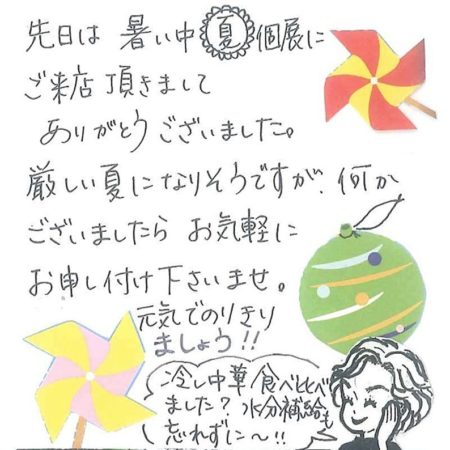 先日は 暑い中 夏 個展に
ご来店 頂きまして
ありがとうございました。
厳しい夏になりそうですが、何か
ございましたら お気軽に
お申し付け下さいませ。
元気でのりきり
ましょう!!
冷し中華 食べ比べ
ました? 水分補給も
忘れずに〜!!